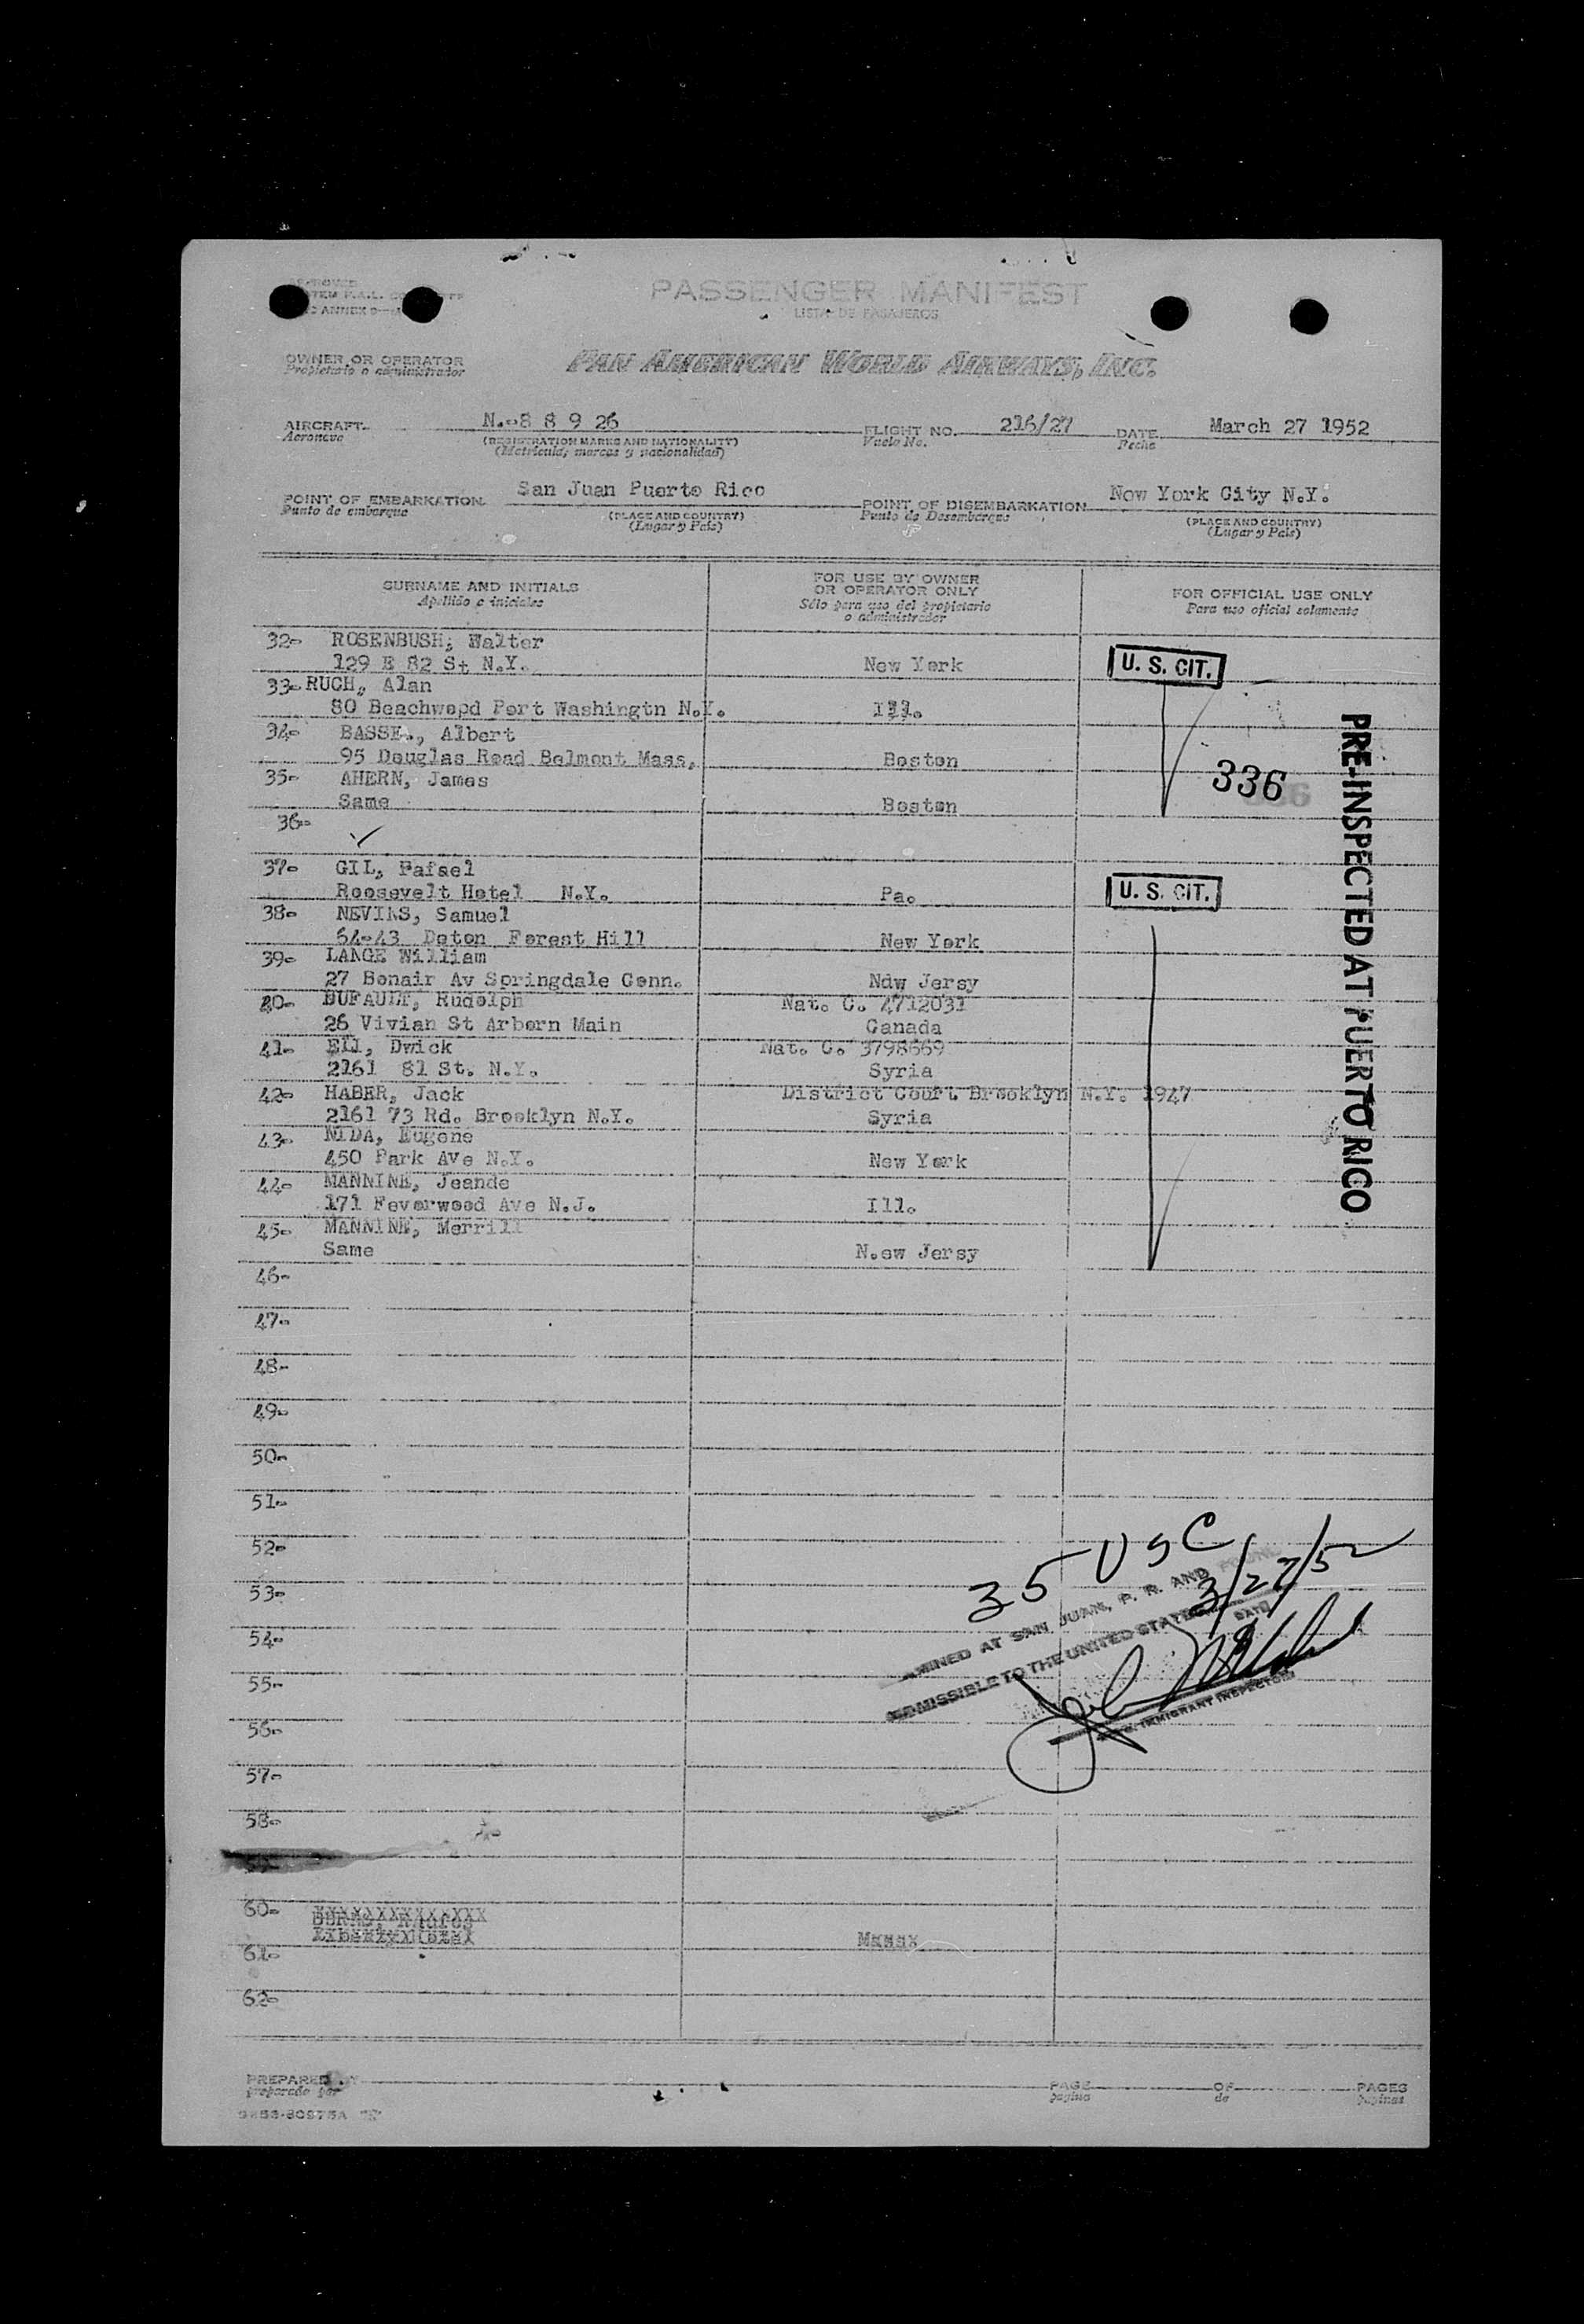 PASSENGER MANIFEST
LISTA DE PASAJEROS
ANNEX 9
OWNER OR OPERATOR
Propietario o administrador
PAN AMERICAN WORLD AIRWAYS, INC.
AIRCRAFT N.-8 8 9 26 FLIGHT NO. 216/27 DATE March 27 1952
Aeronave (REGISTRATION MARKS AND NATIONALITY) Vuelo No. Fecha
(Matricula, marcas y nacionalidad)
POINT OF EMBARKATION San Juan Puerto Rico POINT OF DISEMBARKATION New York City N.Y.
Punto de embarque (PLACE AND COUNTRY) Punto de Desembarque (PLACE AND COUNTRY)
(Lugar y País) (Lugar y País)
SURNAME AND INITIALS FOR USE BY OWNER OR OPERATOR ONLY FOR OFFICIAL USE ONLY
Apellido e iniciales Sólo para uso del propietario o administrador Para uso oficial solamente
32- ROSENBUSH, Walter
129 E 82 St N.Y. New York U. S. CIT.
33- RUCH, Alan
80 Beachwood Port Washingtn N.Y. Ill.
34- BASSE., Albert
95 Douglas Road Belmont Mass. Boston
336
35- AHERN, James
Same Boston
36-
37- GIL, Rafael
Roosevelt Hotel N.Y. Pa. U. S. CIT.
38- NEVINS, Samuel
64-43 Deton Forest Hill New York
39- LANGE William
27 Bonair Av Springdale Conn. Ndw Jersy
40- DUFAULT, Rudolph Nat. C. 4712031
26 Vivian St Arborn Main Canada
41- ELI, Dwick Nat. C. 3798669
2161 81 St. N.Y. Syria
42- HABER, Jack District Court Brooklyn N.Y. 1947
2161 73 Rd. Brooklyn N.Y. Syria
43- NIDA, Eugene
450 Park Ave N.Y. New York
44- MANNINE, Jeande
171 Feverwood Ave N.J. Ill.
45- MANNINE, Merrill
Same N.ew Jersy
PRE-INSPECTED AT PUERTO RICO
46-
47-
48-
49-
50-
51-
52-
53-
54-
55-
56-
57-
58-
59-
60-
61-
62-
35 USC 3/27/52
MINED AT SAN JUAN, P. R. AND
ADMISSIBLE TO THE UNITED STATES DATE
IMMIGRANT INSPECTOR
PREPARED BY PAGE OF PAGES
preparado por pagina de paginas